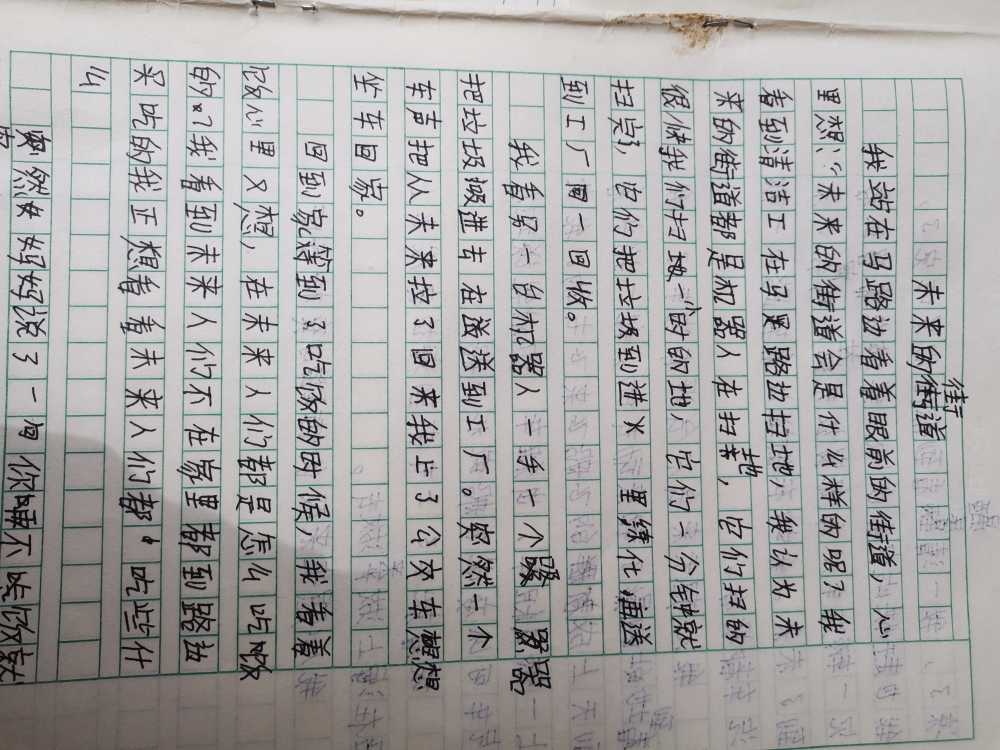 未来的街道
我站在马路边看着眼前的街道，心
里想：“未来的街道会是什么样的呢？我
看到清洁工在马路边扫地，我认为未
来的街道都是机器人在扫地，它们扫的
很快我们扫一小时的地，它们一分钟就
扫完，它们把垃圾到进火里 化，运送
到工厂回一回收。
我看另一台机器人一手一个 器
把垃圾吸进去在送到工厂。突然一个
车声把从未来拉了回来我上了公交车想
坐车回家。
回到家等到了吃饭的时候，我看着
饭心里又想，在未来人们都是怎么吃饭
的？我看到未来人们不在家里都到路边
采吃的我正想着未来人们都 吃些什
么
突然妈妈说了一句你 不吃饭